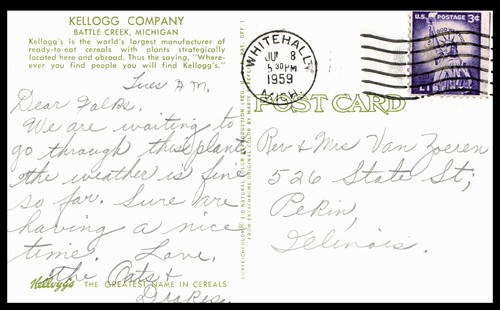 KELLOGG COMPANY
BATTLE CREEK, MICHIGAN
Kellogg's is the world's largest manufacturer of
ready-to-eat cereals with plants strategically
located here and abroad. Thus the saying, "Where-
ever you find people you will find Kellogg's."
Tues A M.
Dear Folks.
We are waiting to
go through this plant
the weather is fine
so far. Sure are
having a nice
time. Love,
The Oats &
Drakes.
Kellogg's THE GREATEST NAME IN CEREALS
WHITEHALL
JUL 8
5 30 PM
1959
MICH.
U.S. POSTAGE 3¢
POST CARD
Rev & Mrs Van Zoeren
526 State St;
Pekin,
Illinois.